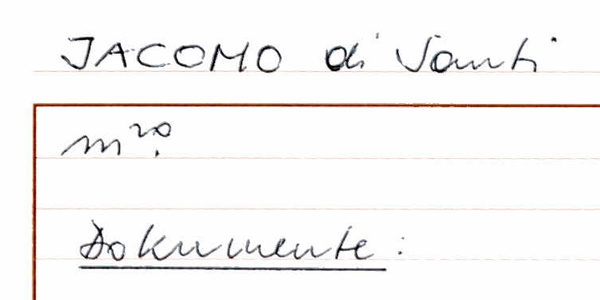 JACOMO di Santi
m^ro.
Dokumente: